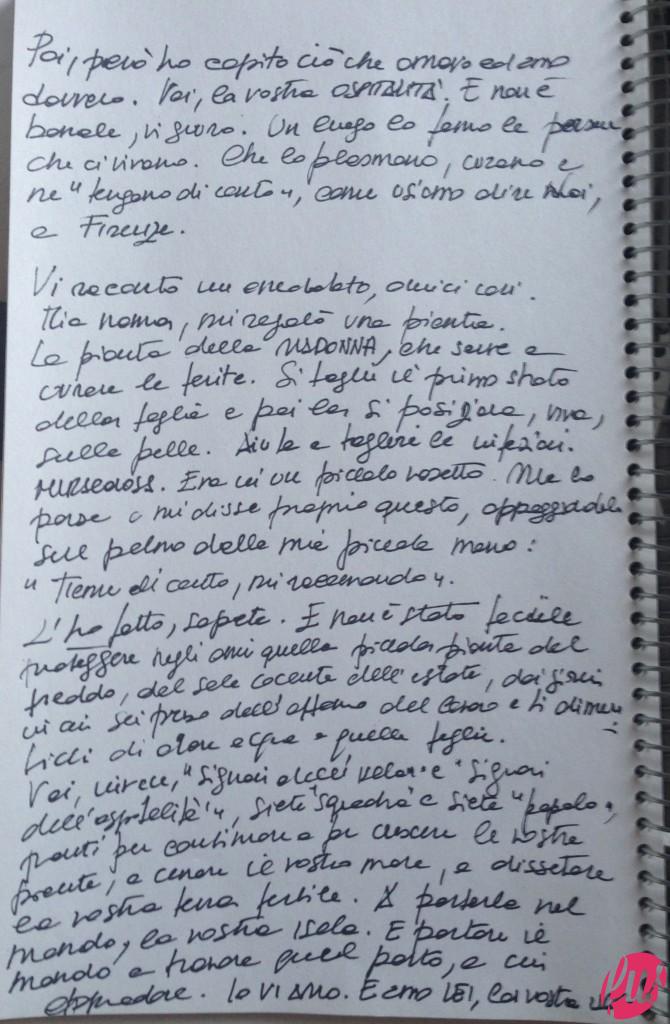 Poi, però ho capito ciò che amavo ed amo
davvero. Voi, la vostra OSPITALITÀ. E non è
banale, vi giuro. Un luogo lo fanno le persone
che ci vivono. Che lo plasmano, curano e
ne "tengono di conto", come usiamo dire noi,
a Firenze.
Vi racconto un aneddoto, amici cari.
Mia nonna, mi regalò una pianta.
La pianta della MADONNA, che serve a
curare le ferite. Si toglie il primo strato
della foglia e poi la si posiziona, viva,
sulla pelle. Aiuta a togliere le infezioni.
Era in un piccolo vasetto. Me lo
porse e mi disse proprio questo, appoggiandolo
sul palmo della mia piccola mano:
"Tienine di conto, mi raccomando".
L'ho fatto, sapete. E non è stato facile
proteggere negli anni quella piccola pianta dal
freddo, dal sole cocente dell'estate, dai giorni
in cui sei preso dall'affanno del lavoro e ti dimen=
tichi di dare acqua a quella foglia.
Voi, invece, "Signori del e "Signori
dell'ospitalità", siete squadra e siete "popolo",
pronti per continuare a far crescere le vostre
piante, a curare il vostro mare, a dissetare
la vostra terra fertile. A portarla nel
mondo, la vostra Isola. E portare il
mondo a trovare quel porto, a cui
approdare. Io VI AMO. E amo LEI, la vostra